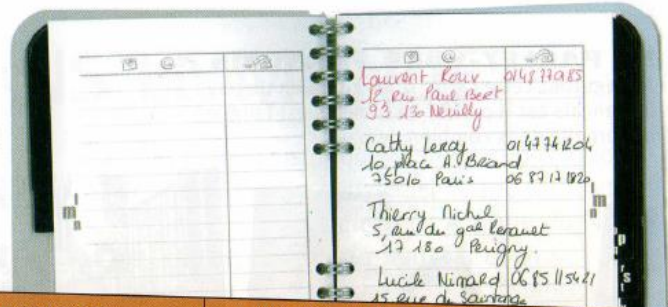 @
@
Laurent Roux 0148770985
12 Rue Paul Bert
93 130 Neuilly
Cathy Leroy 0147741204
10, place A. Briand
75010 Paris 06 87 17 1820
Thierry Michel
5, rue du gal
17 180 Périgny.
Lucile 06 85 115421
15 rue de
l
m
n
l
m
n
p
r
s
t